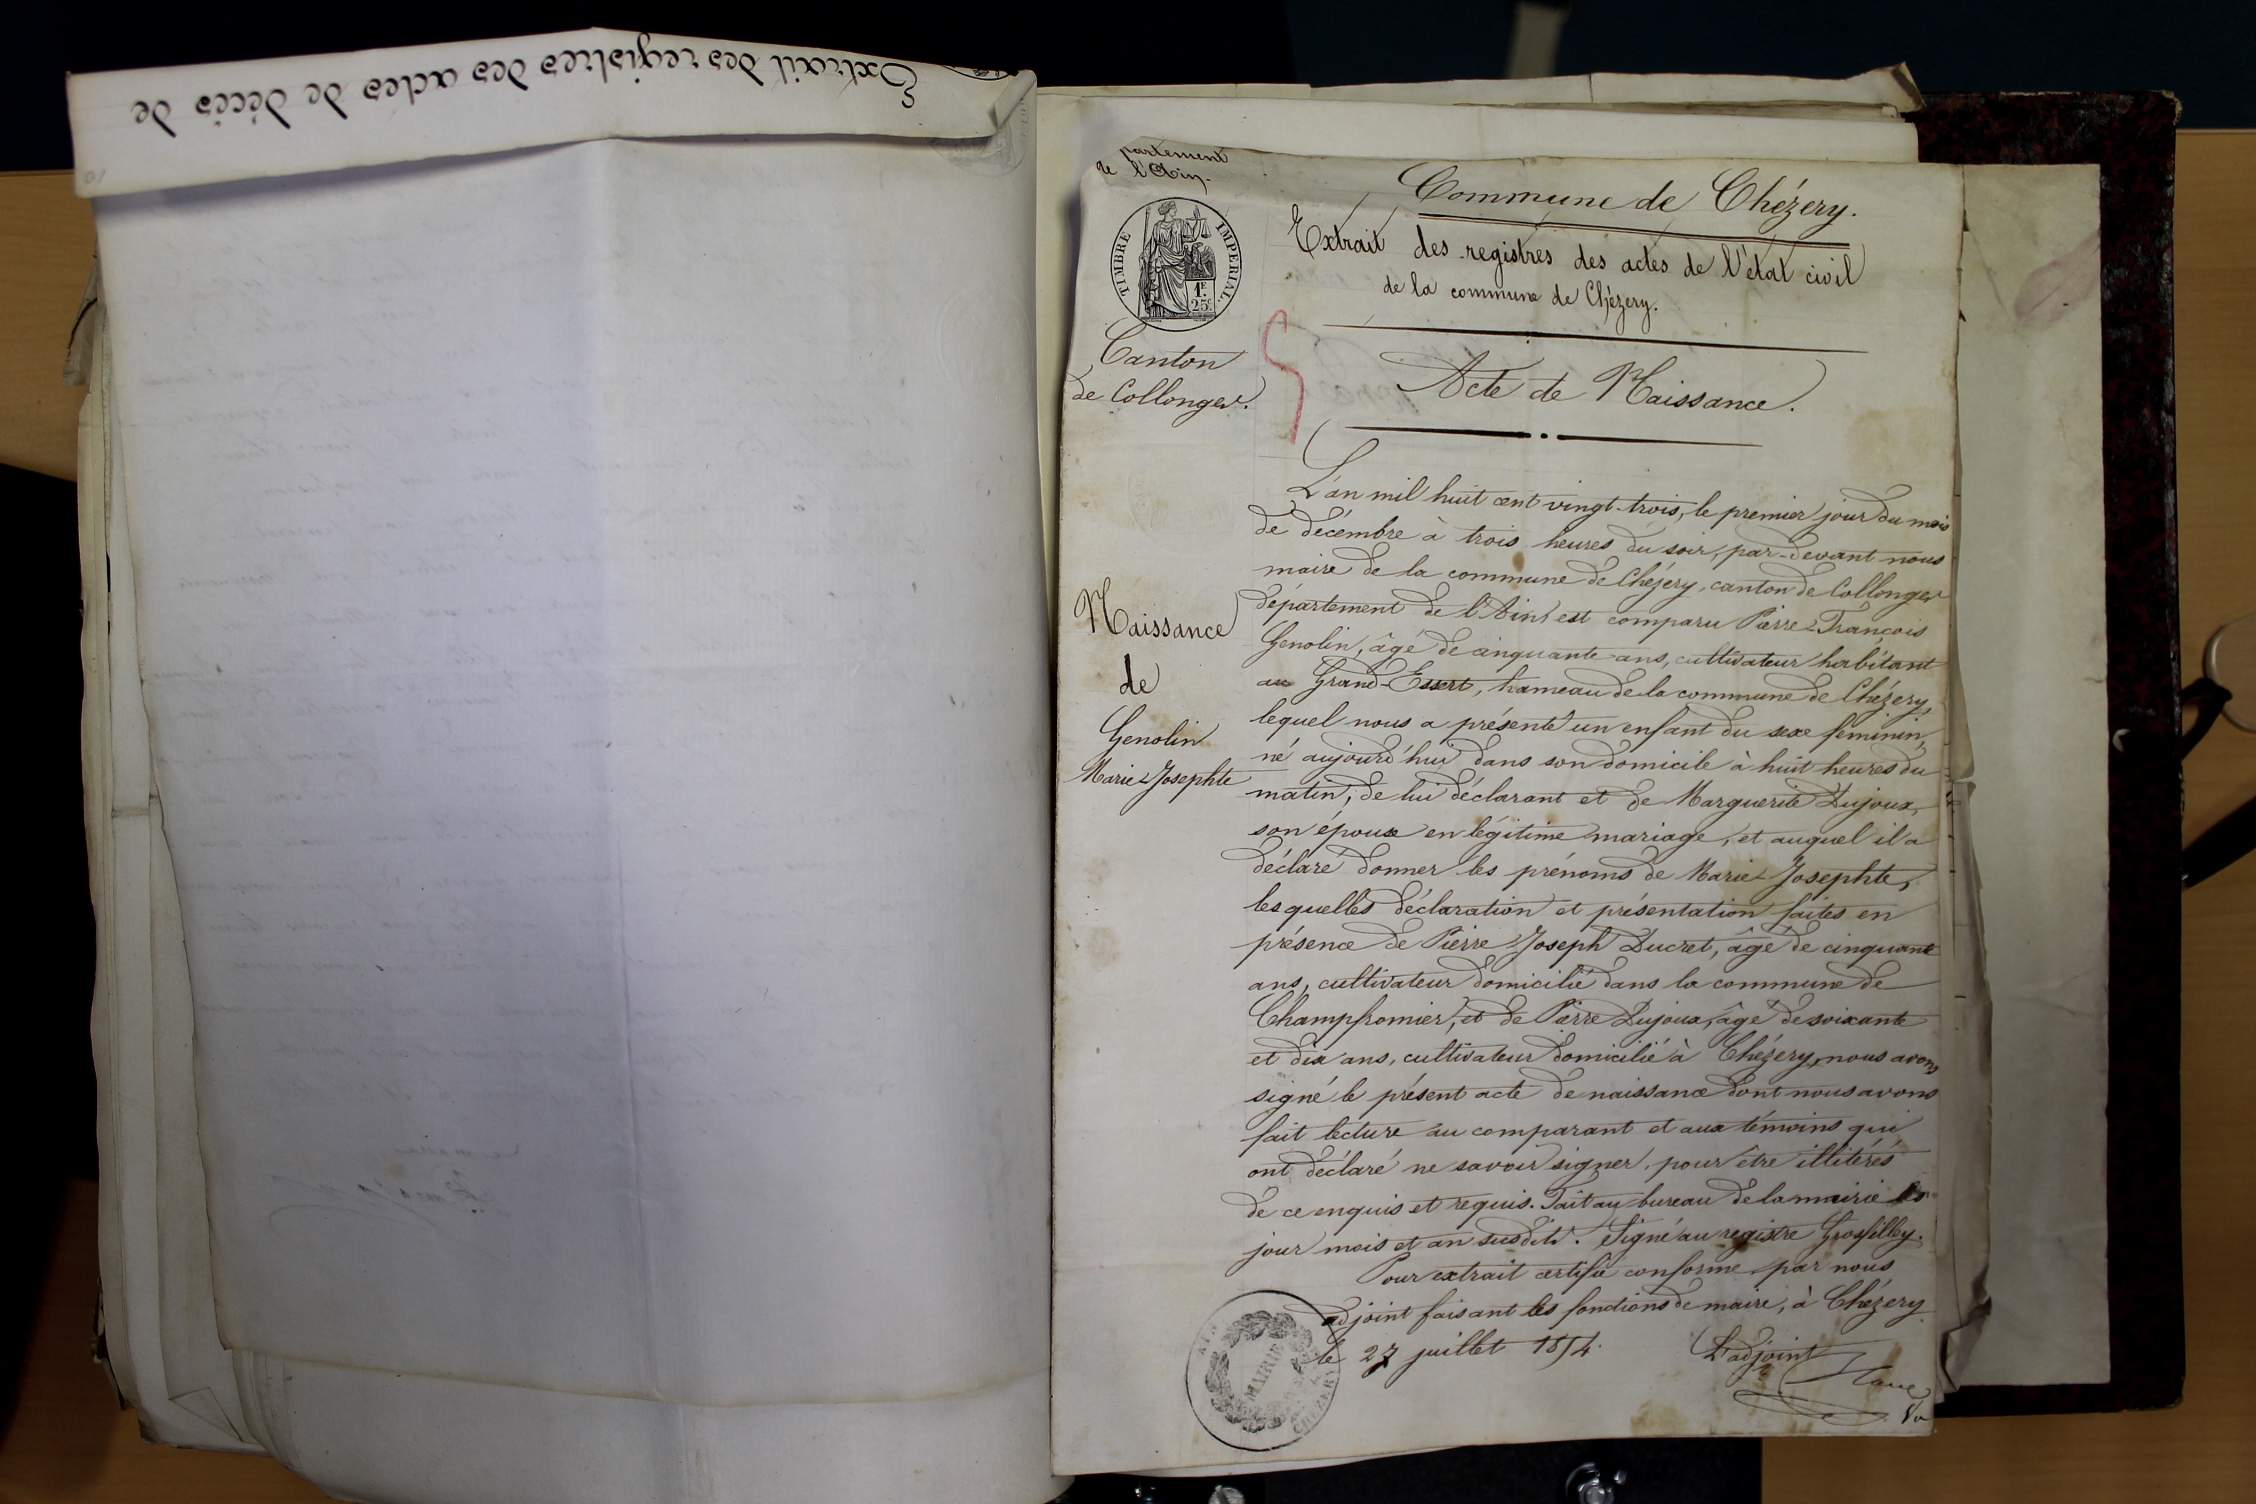 Extrait des registres des actes de décès de
partement
de l'Ain.
Commune de Chézery.
Extrait des registres des actes de l'état civil
de la commune de Chézery.
TIMBRE IMPERIAL.
1F.
25c.
Canton
de Collonges.
Acte de Naissance.
L'an mil huit cent vingt-trois, le premier jour du mois
de décembre à trois heures du soir, par-devant nous
maire de la commune de Chézery, canton de Collonges
département de l'Ain est comparu Pierre-François
Genolin, âgé de cinquante ans, cultivateur habitant
au Grand-Essert, hameau de la commune de Chézery,
lequel nous a présenté un enfant du sexe feminin,
né aujourd'hui dans son domicile à huit heures du
matin, de lui déclarant et de Marguerite Dujoux,
son épouse en légitime mariage, et auquel il a
déclaré donner les prénoms de Marie-Josephte,
lesquelles déclaration et présentation faites en
présence de Pierre Joseph Ducret, âgé de cinquante
ans, cultivateur domicilié dans la commune de
Champfromier, et de Pierre Dujoux, âgé de soixante
et dix ans, cultivateur domicilié à Chézery, nous avons
signé le présent acte de naissance dont nous avons
fait lecture au comparant et aux témoins qui
ont déclaré ne savoir signer, pour être illitérés
de ce enquis et requis. Fait au bureau de la mairie les
jour mois et an susdits. Signé au registre Grosfilley.
Pour extrait certifié conforme par nous
adjoint faisant les fonctions de maire, à Chézery
le 27 juillet 1854.
L'adjoint
Naissance
de
Genolin
Marie-Josephte
MAIRIE
CHEZERY
AIN